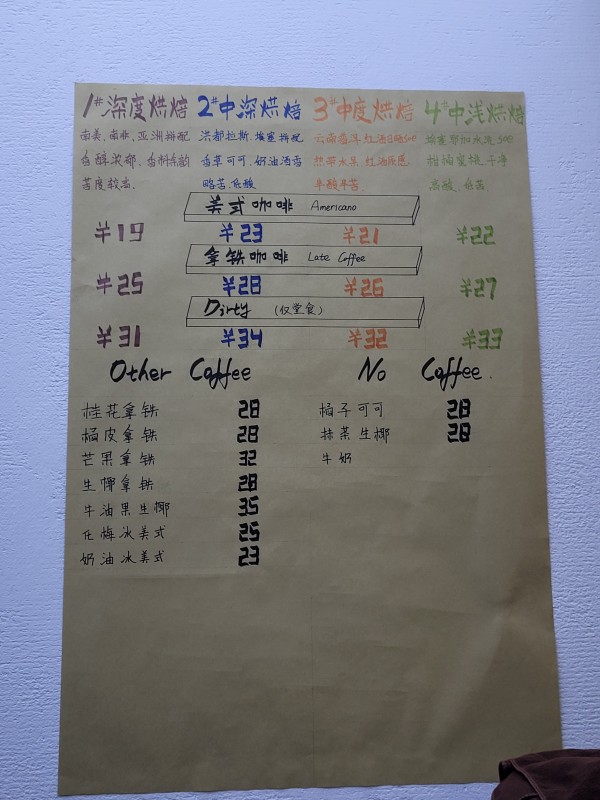 1# 深度烘焙 2# 中深烘焙 3# 中度烘焙 4# 中浅烘焙
南美、南非、亚洲拼配 洪都拉斯、埃塞拼配 云南 红酒日晒SOE 埃塞耶加水洗SOE
香醇浓郁、香料余韵 香草可可、奶油酒香 热带水果 红酒质感 柑油蜜桃 干净
苦度较高. 略苦、低酸 中酸中苦 高酸、低苦
美式咖啡 Americano
¥19 ¥23 ¥21 ¥22
拿铁咖啡 Late Coffee
¥25 ¥28 ¥26 ¥27
Dirty (仅堂食)
¥31 ¥34 ¥32 ¥33
Other Coffee No Coffee.
桂花拿铁 28 橘子可可 28
橘皮拿铁 28 抹茶生椰 28
芒果拿铁 32 牛奶
生椰拿铁 28
牛油果生椰 35
化梅冰美式 25
奶油冰美式 23